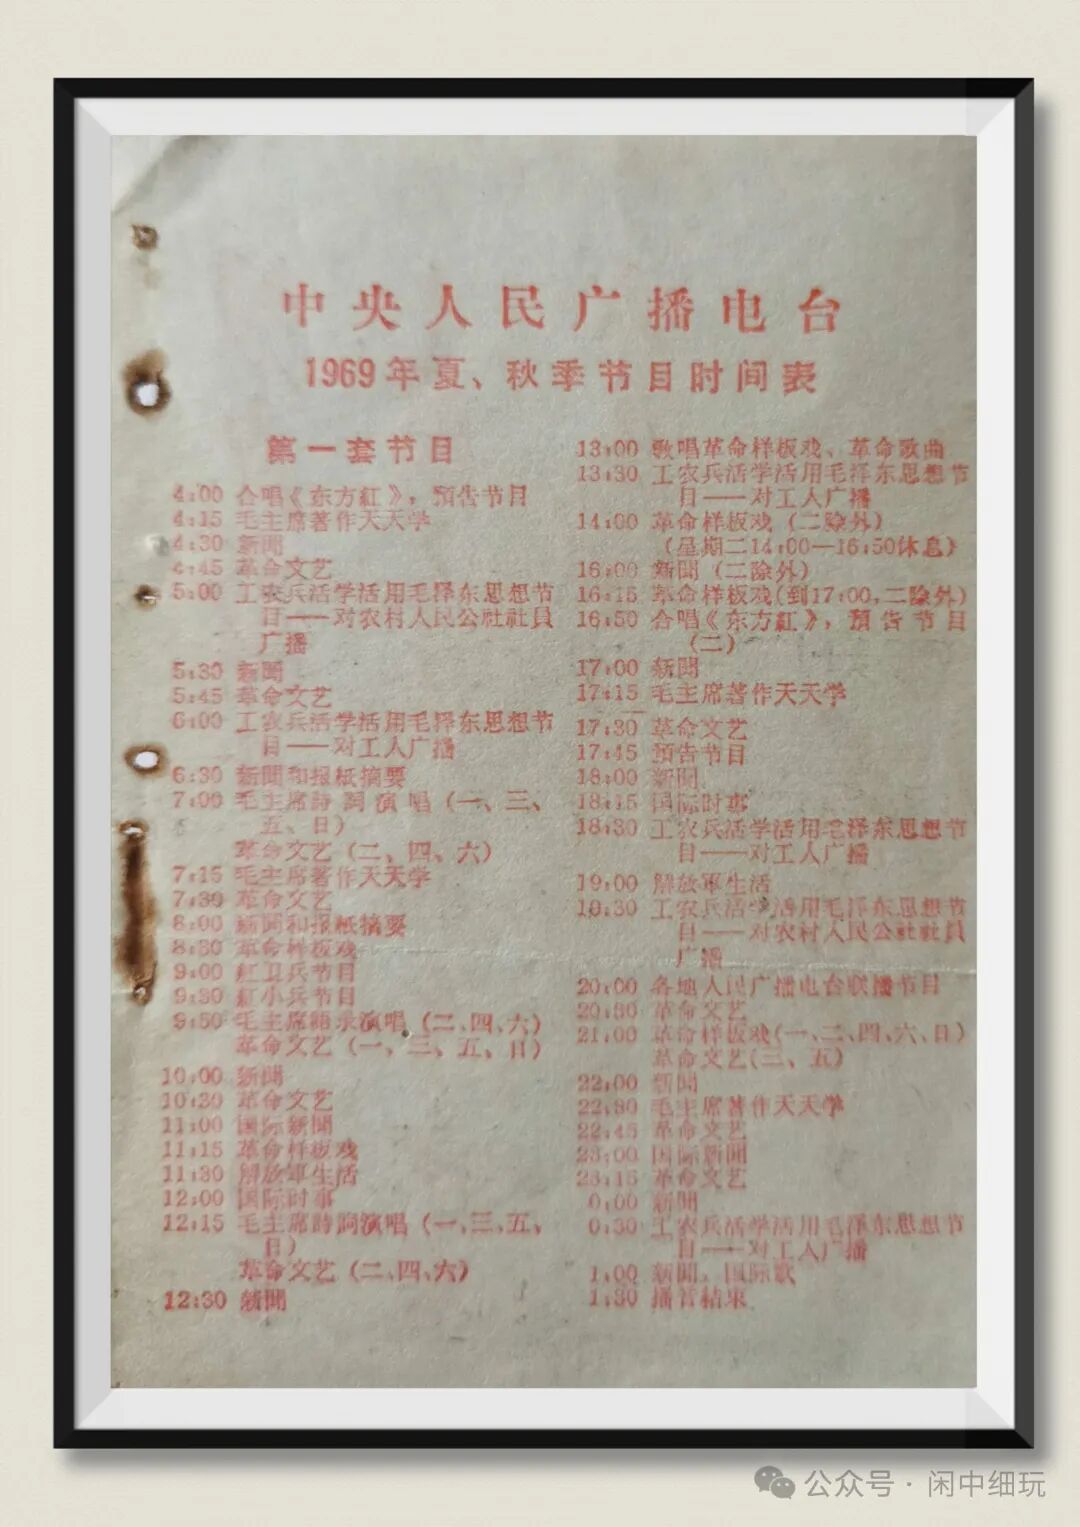 中央人民广播电台
1969年夏、秋季节目时间表
第一套节目
4:00 合唱《东方紅》,預告节目
4:15 毛主席著作天天学
4:30 新聞
4:45 革命文艺
5:00 工农兵活学活用毛泽东思想节
目——对农村人民公社社員
广播
5:30 新聞
5:45 革命文艺
6:00 工农兵活学活用毛泽东思想节
目——对工人广播
6:30 新聞和报紙摘要
7:00 毛主席詩詞演唱(一、三、
五、日)
革命文艺(二、四、六)
7:15 毛主席著作天天学
7:30 革命文艺
8:00 新聞和报紙摘要
8:30 革命样板戏
9:00 紅卫兵节目
9:30 紅小兵节目
9:50 毛主席語录演唱(二、四、六)
革命文艺(一、三、五、日)
10:00 新聞
10:30 革命文艺
11:00 国际新聞
11:15 革命样板戏
11:30 解放軍生活
12:00 国际时事
12:15 毛主席詩詞演唱(一、三、五、
日)
革命文艺(二、四、六)
12:30 新聞
13:00 歌唱革命样板戏、革命歌曲
13:30 工农兵活学活用毛泽东思想节
目——对工人广播
14:00 革命样板戏(二除外)
(星期二14:00—16:50休息)
16:00 新聞(二除外)
16:15 革命样板戏(到17:00,二除外)
16:50 合唱《东方紅》,預告节目
(二)
17:00 新聞
17:15 毛主席著作天天学
17:30 革命文艺
17:45 預告节目
18:00 新聞
18:15 国际时事
18:30 工农兵活学活用毛泽东思想节
目——对工人广播
19:00 解放軍生活
19:30 工农兵活学活用毛泽东思想节
目——对农村人民公社社員
广播
20:00 各地人民广播电台联播节目
20:30 革命文艺
21:00 革命样板戏(一、二、四、六、日)
革命文艺(三、五)
22:00 新聞
22:30 毛主席著作天天学
22:45 革命文艺
23:00 国际新聞
23:15 革命文艺
0:00 新聞
0:30 工农兵活学活用毛泽东思想节
目——对工人广播
1:00 新聞、国际歌
1:30 播音結束
公众号·闲中细玩